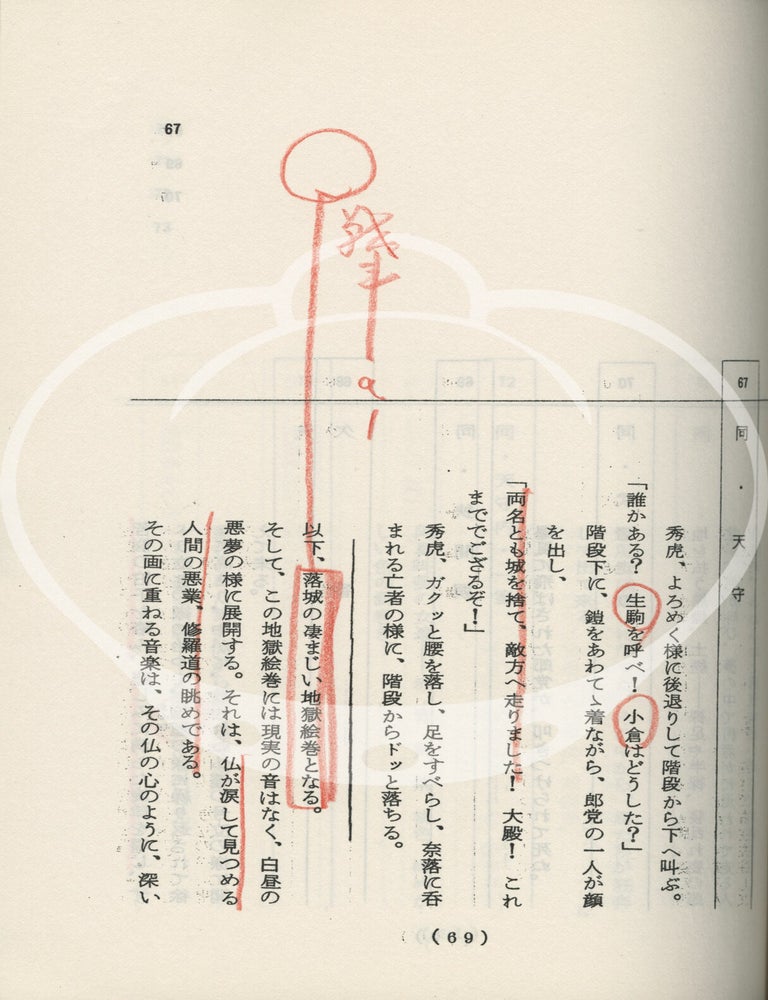 67
67
同・天守
秀虎、よろめく様に後退りして階段から下へ叫ぶ。
「誰かある? 生駒を呼べ! 小倉はどうした?」
階段下に、鎧をあわてゝ着ながら、郎党の一人が顔
を出し、
「両名とも城を捨て、敵方へ走りました! 大殿! これ
まででござるぞ!」
秀虎、ガクッと腰を落し、足をすべらし、奈落に呑
まれる亡者の様に、階段からドッと落ちる。
以下、落城の凄まじい地獄絵巻となる。
そして、この地獄絵巻には現実の音はなく、白昼の
悪夢の様に展開する。それは、仏が涙して見つめる
人間の悪業、修羅道の眺めである。
その画に重ねる音楽は、その仏の心のように、深い
(69)